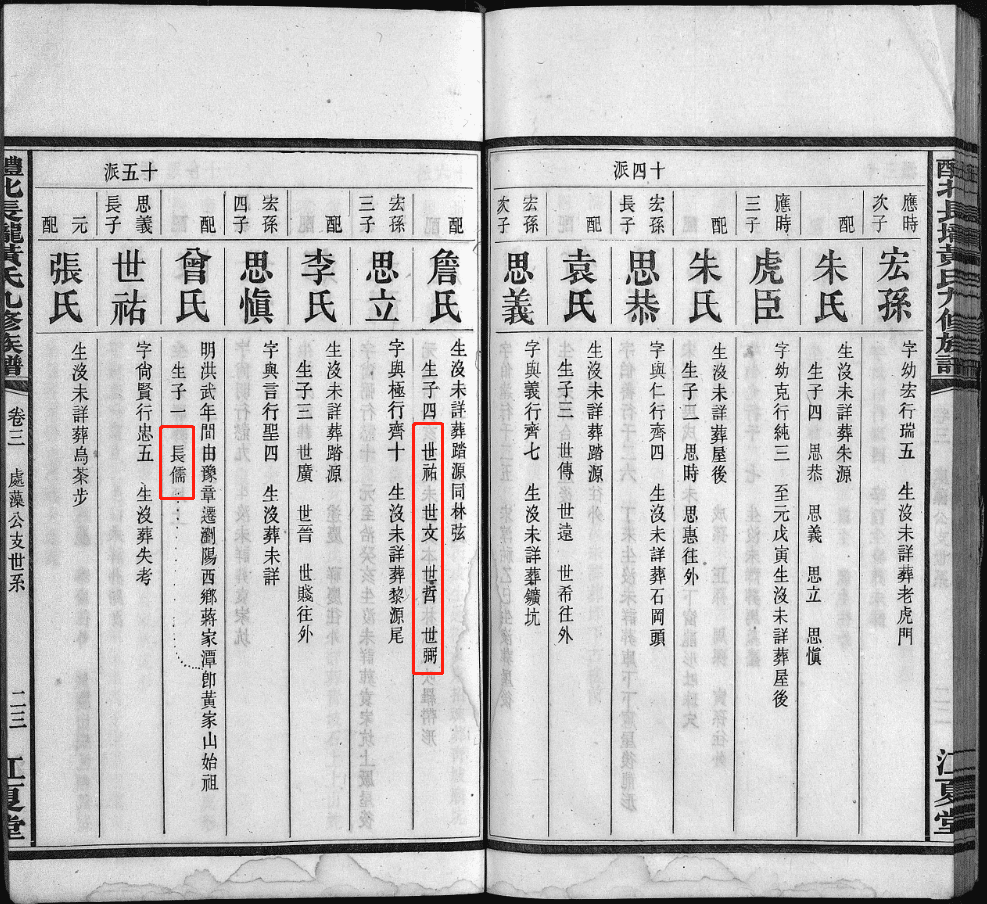 北長隴黃氏九修族譜
江夏堂
十四派
應時
次子
宏孫
字幼宏行瑞五 生沒未詳葬老虎門
配
朱氏
生沒未詳葬朱源
生子四 思恭 思義 思立 思愼
應時
三子
虎臣
字幼克行純三 至元戊寅生沒未詳葬屋後
配
朱氏
生沒未詳葬屋後
生子二 思時 思惠往外
宏孫
長子
思恭
字與仁行齊四 生沒未詳葬石岡頭
配
袁氏
生沒未詳葬踏源
生子三 世傳 世遠 世希往外
宏孫
次子
思義
字與義行齊七 生沒未詳葬鑛坑
十五派
配
詹氏
生沒未詳葬踏源同林弦
生子四 世祐 世文 世哲 世弼
宏孫
三子
思立
字與極行齊十 生沒未詳葬黎源尾
配
李氏
生沒未詳葬踏源
生子三 世廣 世晉 世賤往外
宏孫
四子
思愼
字與言行聖四 生沒葬未詳
配
曾氏
明洪武年間由豫章遷瀏陽西鄉蔣家潭卽黃家山始祖
生子一 長儒
思義
長子
世祐
字尙賢行忠五 生沒葬失考
元配
張氏
生沒未詳葬烏茶步
醴北長隴黃氏九修族譜 卷三 處藻公支世系 二三 江夏堂